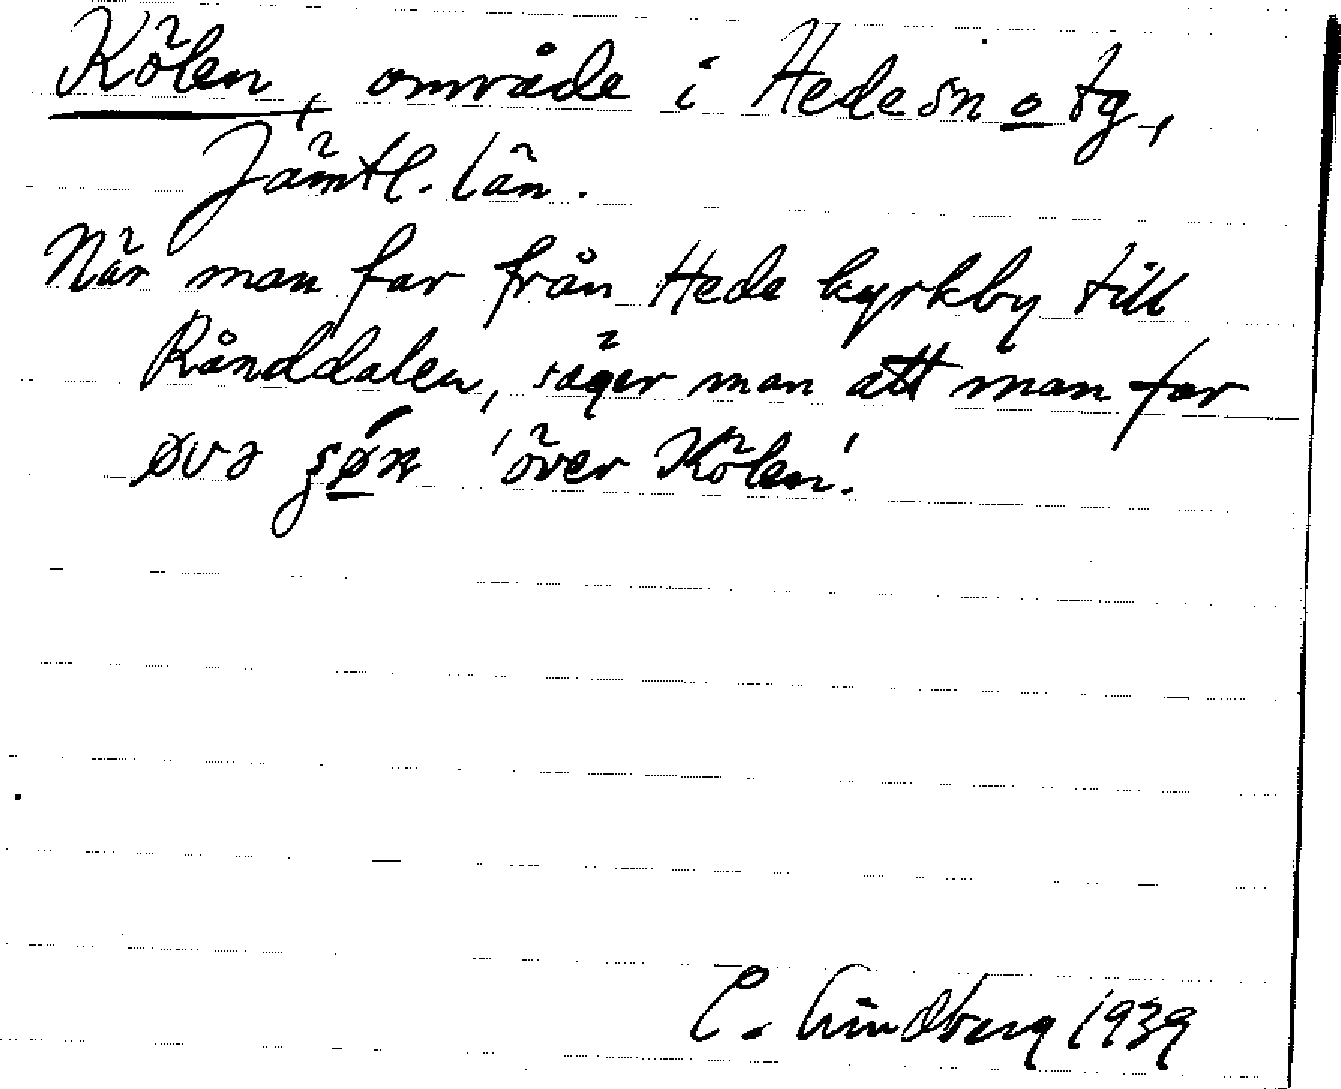 Kölen, område i Hede sn o tg,
Jämtl. län.
När man far från Hede kyrkby till
Rånddalen, säger man att man far
øvə 'över Kölen'.
C. Lindberg 1939